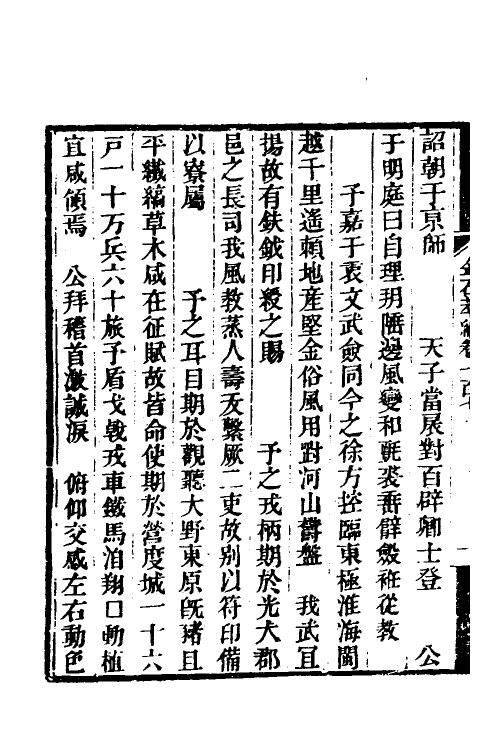 詔朝于京師　天子當扆對百辟卿士登　公
于明庭曰自理玥隴邊風變和氈裘垂辟㲉袵從教
予嘉于衷文武僉同今之徐方控臨東極淮海閩
越千里遙賴地産堅金俗風用對河山鬱盤　我武宜
揚故有鈇鉞印綬之賜　予之戎柄期於光大郡
邑之長司我風教蒸人壽夭繫厥二吏故别以符印備
以寮屬　予之耳目期於觀聽大野東原旣猪且
平纎縞草木咸在征賦故皆命使期於營度城一十六
戸一十万兵六十旅予盾戈戟戎車鐵馬洎翔□動植
宜咸領焉　公拜稽首激誠淚　俯仰交感左右動色
金石萃編卷一百七